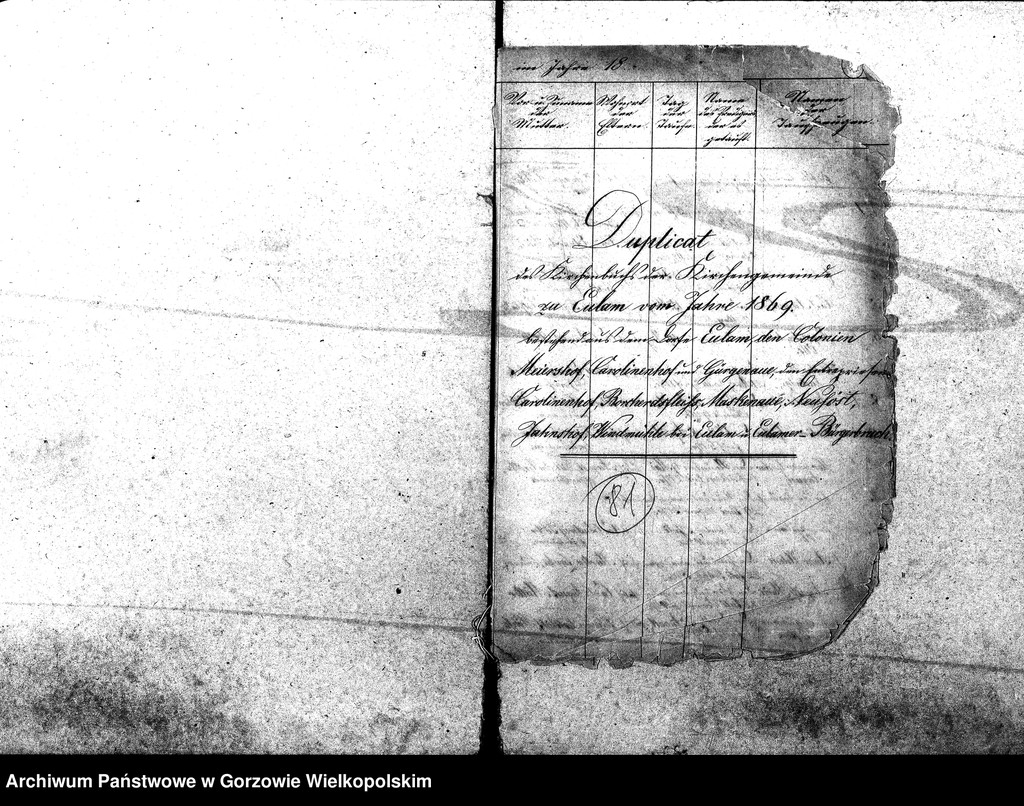 im Jahre 18
Vor- u. Zuname der Mutter.
Wohnort der Eltern
Tag der Taufe.
Name des Predigers der es getauft.
Namen der Taufzeugen.
Duplicat
des Kirchenbuchs der Kirchengemeinde
zu Eulam vom Jahre 1869.
bestehend aus dem Dorfe Eulam, den Colonien
Meiershof, Carolinenhof und Gürgenaue, den
Carolinenhof, Maskenaue,
Jahnshof, Windmühle bei Eulam u. Eulamer-Bürgerbruch.
81
Archiwum Państwowe w Gorzowie Wielkopolskim